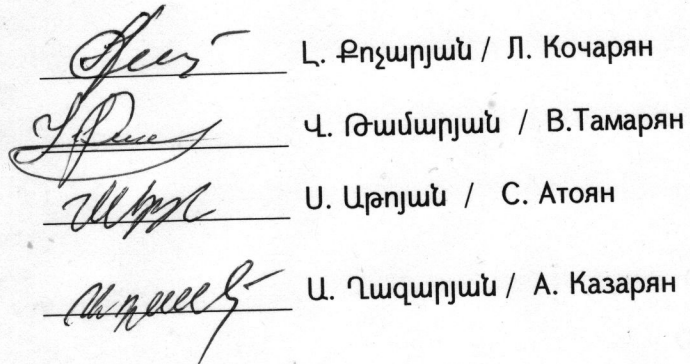 Լ. Քոչարյան / Л. Кочарян
Վ. Թամարյան / В.Тамарян
Ս. Աթոյան / С. Атоян
Ա. Ղազարյան / А. Казарян